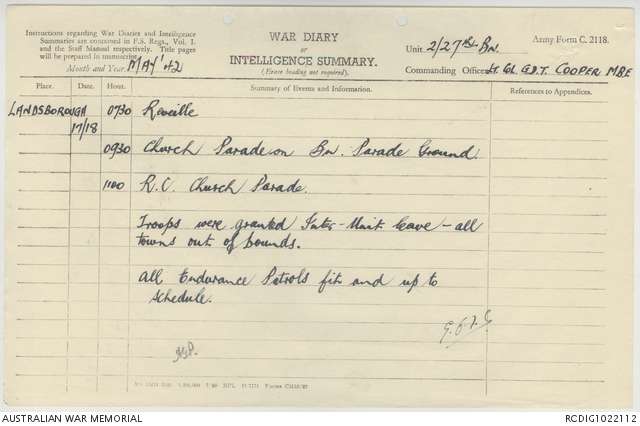 Instructions regarding War Diaries and Intelligence
Summaries are contained in F.S. Regs., Vol. I.
and the Staff Manual respectively. Title pages
will be prepared in manuscript.
Month and Year MAY '42
WAR DIARY
or
INTELLIGENCE SUMMARY.
(Erase heading not required).
Army Form C. 2118.
Unit 2/27th Bn.
Commanding Officer Lt. Col. G.D.T. COOPER MBE
Place. Date. Hour. Summary of Events and Information. References to Appendices.
LANDSBOROUGH 0730 Reveille
17/18
0930 Church Parade on Bn. Parade Ground.
1100 R.C. Church Parade.
Troops were granted Inter-Unit leave - all
towns out of bounds.
All Endurance Patrols fit and up to
schedule.
AUSTRALIAN WAR MEMORIAL
RCDIG1022112